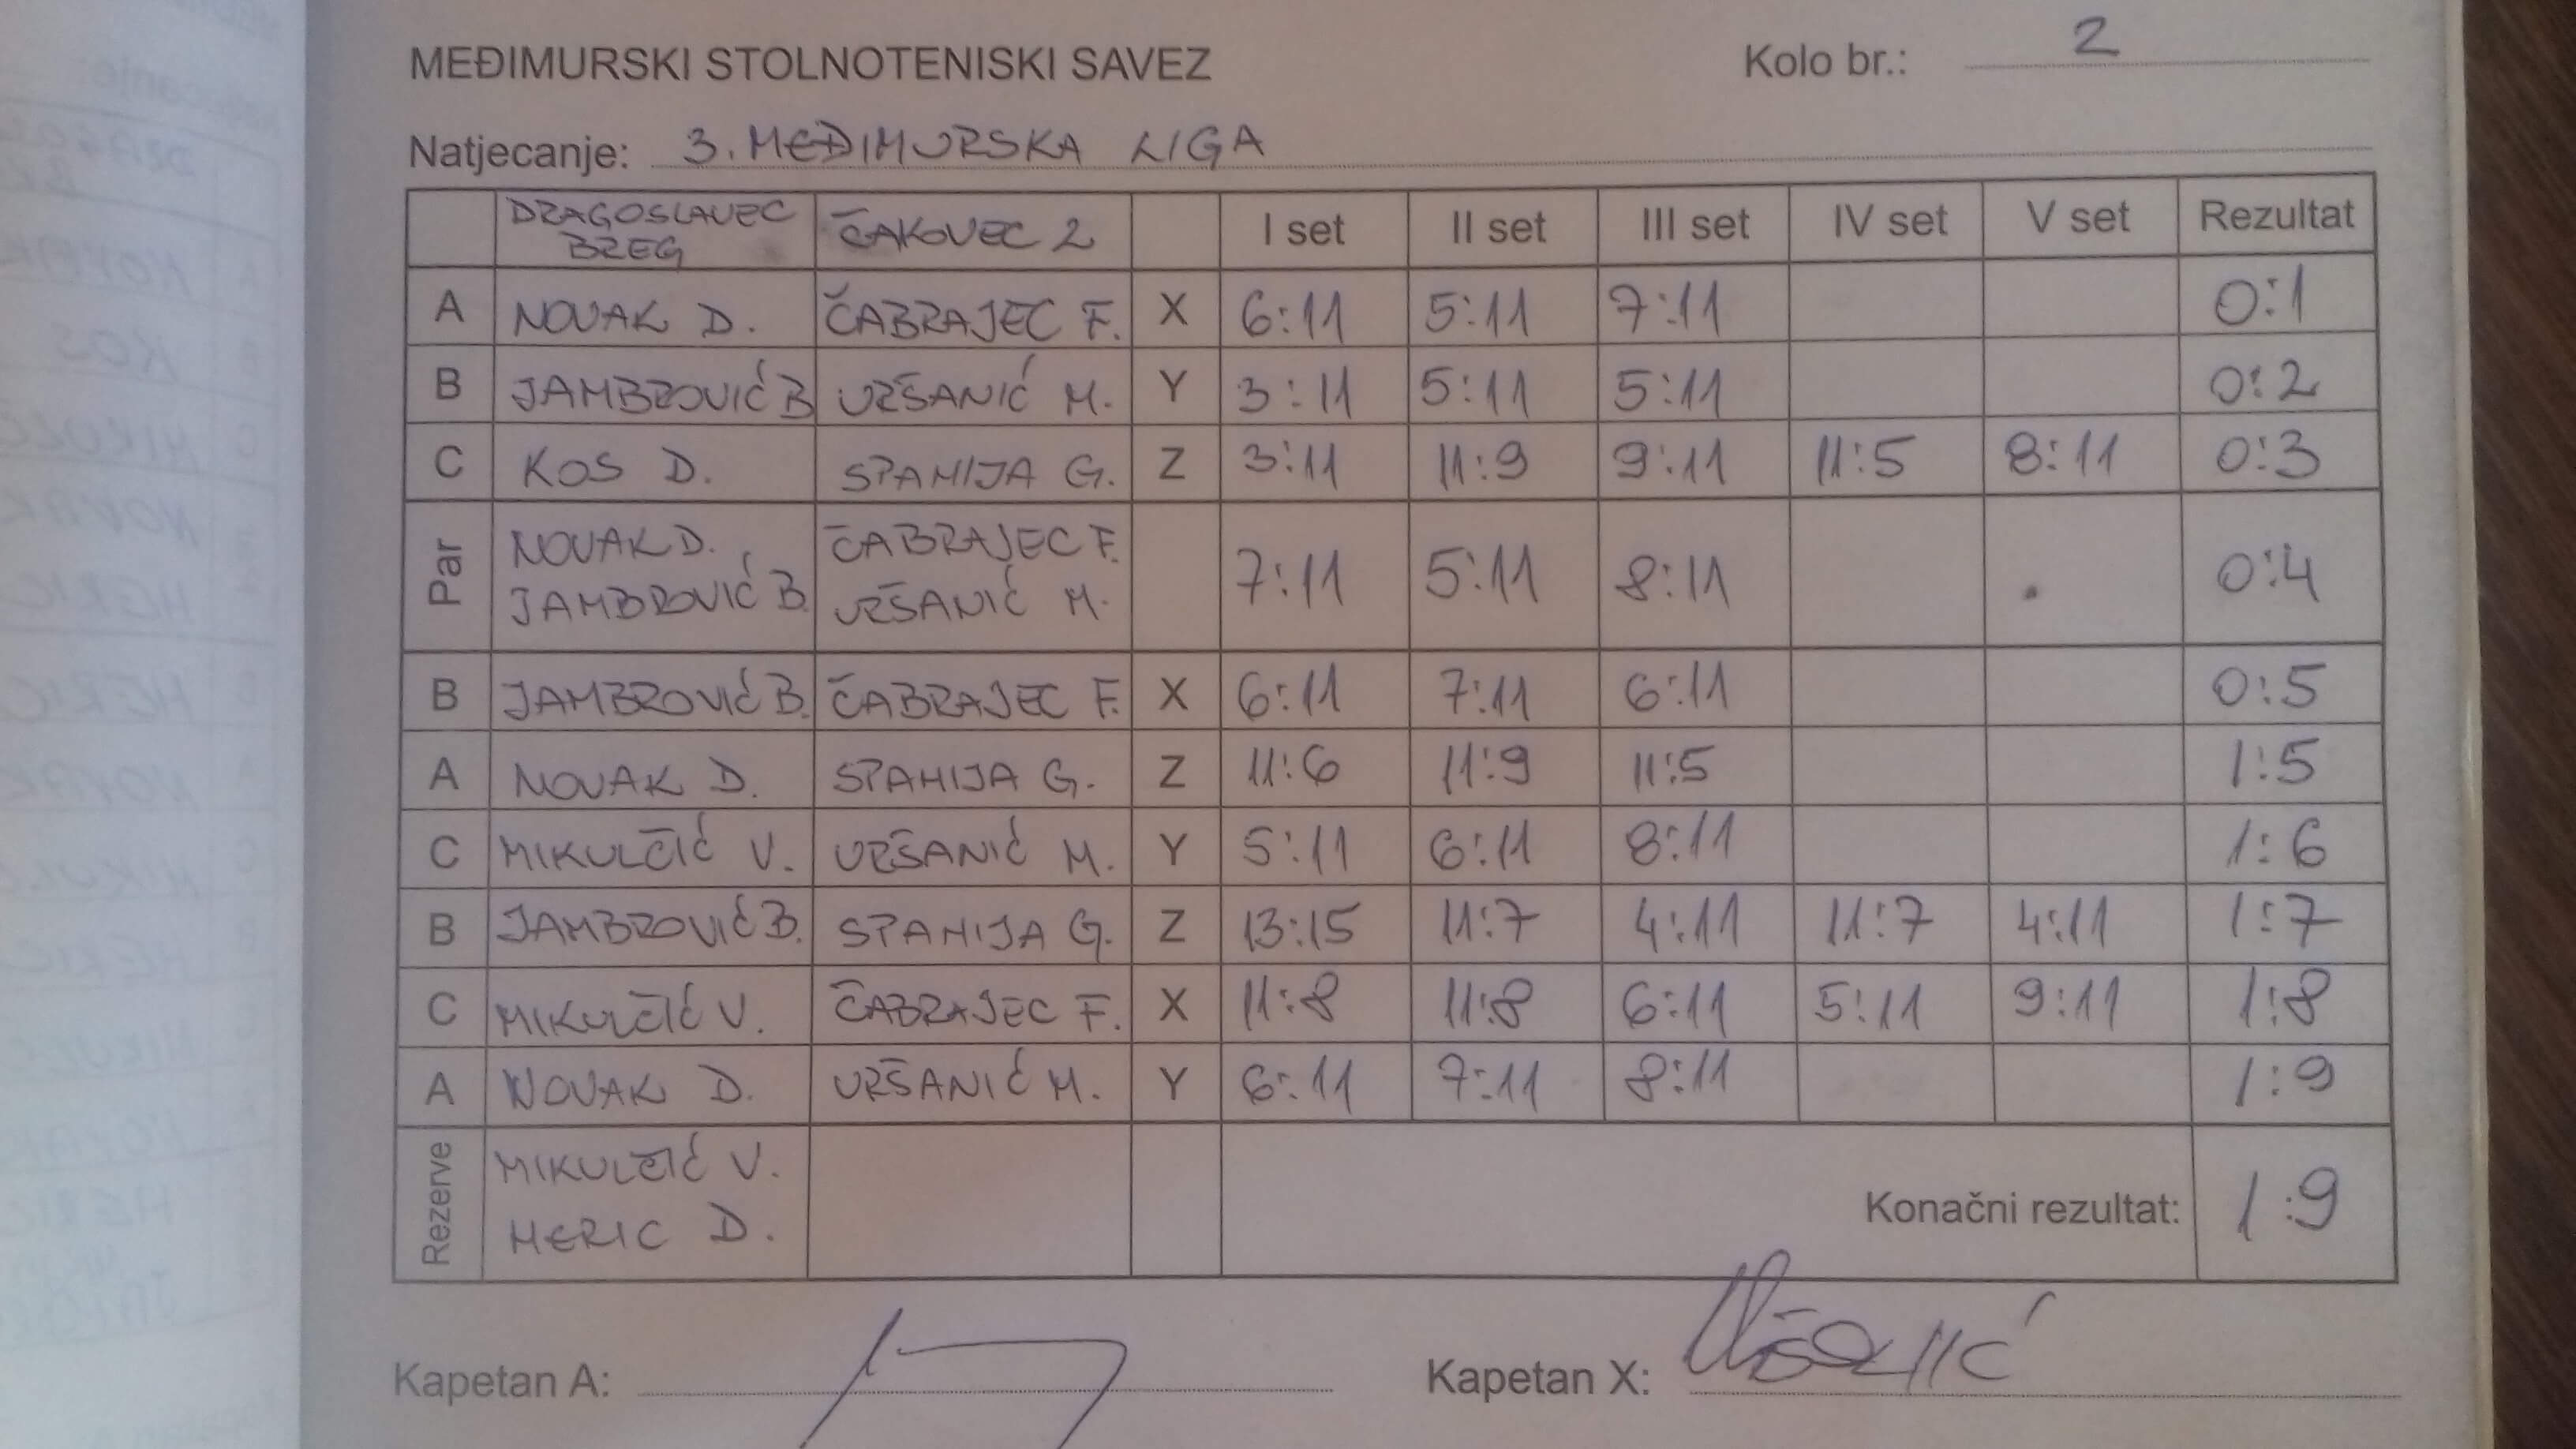 MEĐIMURSKI STOLNOTENISKI SAVEZ Kolo br.: 2
Natjecanje: 3. MEĐIMURSKA LIGA
DRAGOSLAVEC BREG ČAKOVEC 2 I set II set III set IV set V set Rezultat
A NOVAK D. ČABRAJEC F. X 6:11 5:11 7:11 0:1
B JAMBROVIĆ B URŠANIĆ M. Y 3:11 5:11 5:11 0:2
C KOS D. SPAHIJA G. Z 3:11 11:9 9:11 11:5 8:11 0:3
Par NOVAK D. JAMBROVIĆ B. ČABRAJEC F. URŠANIĆ M. 7:11 5:11 8:11 0:4
B JAMBROVIĆ B. ČABRAJEC F. X 6:11 7:11 6:11 0:5
A NOVAK D. SPAHIJA G. Z 11:6 11:9 11:5 1:5
C MIKULČIĆ V. URŠANIĆ M. Y 5:11 6:11 8:11 1:6
B JAMBROVIĆ B. SPAHIJA G. Z 13:15 11:7 4:11 11:7 4:11 1:7
C MIKULČIĆ V. ČABRAJEC F. X 11:8 11:8 6:11 5:11 9:11 1:8
A NOVAK D. URŠANIĆ M. Y 6:11 7:11 8:11 1:9
Rezerve MIKULČIĆ V. HERIC D. Konačni rezultat: 1:9
Kapetan A: Kapetan X: